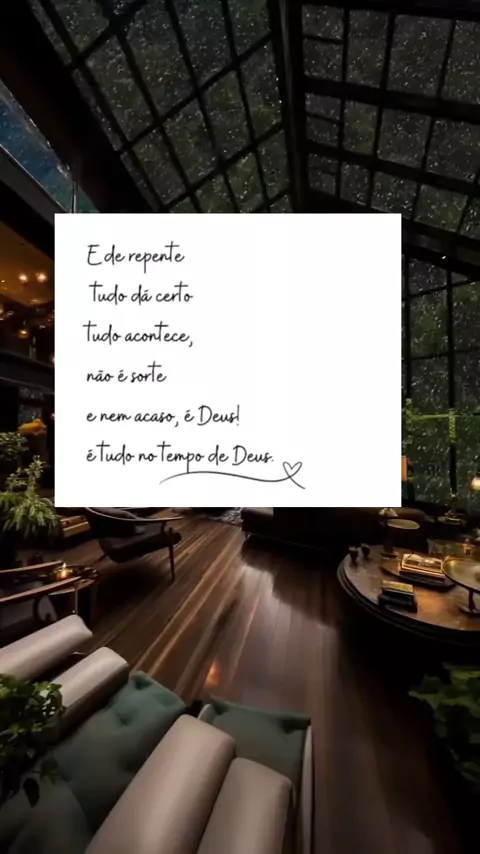 E de repente
tudo dá certo
tudo acontece,
não é sorte
e nem acaso, é Deus!
é tudo no tempo de Deus.